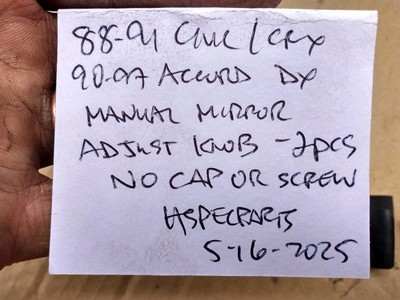 88-91 CIVIC / CRX
90-97 ACCORD DX
MANUAL MIRROR
ADJUST KNOB - 2pcs
NO CAP OR SCREW
HSPECPARTS
5-16-2025